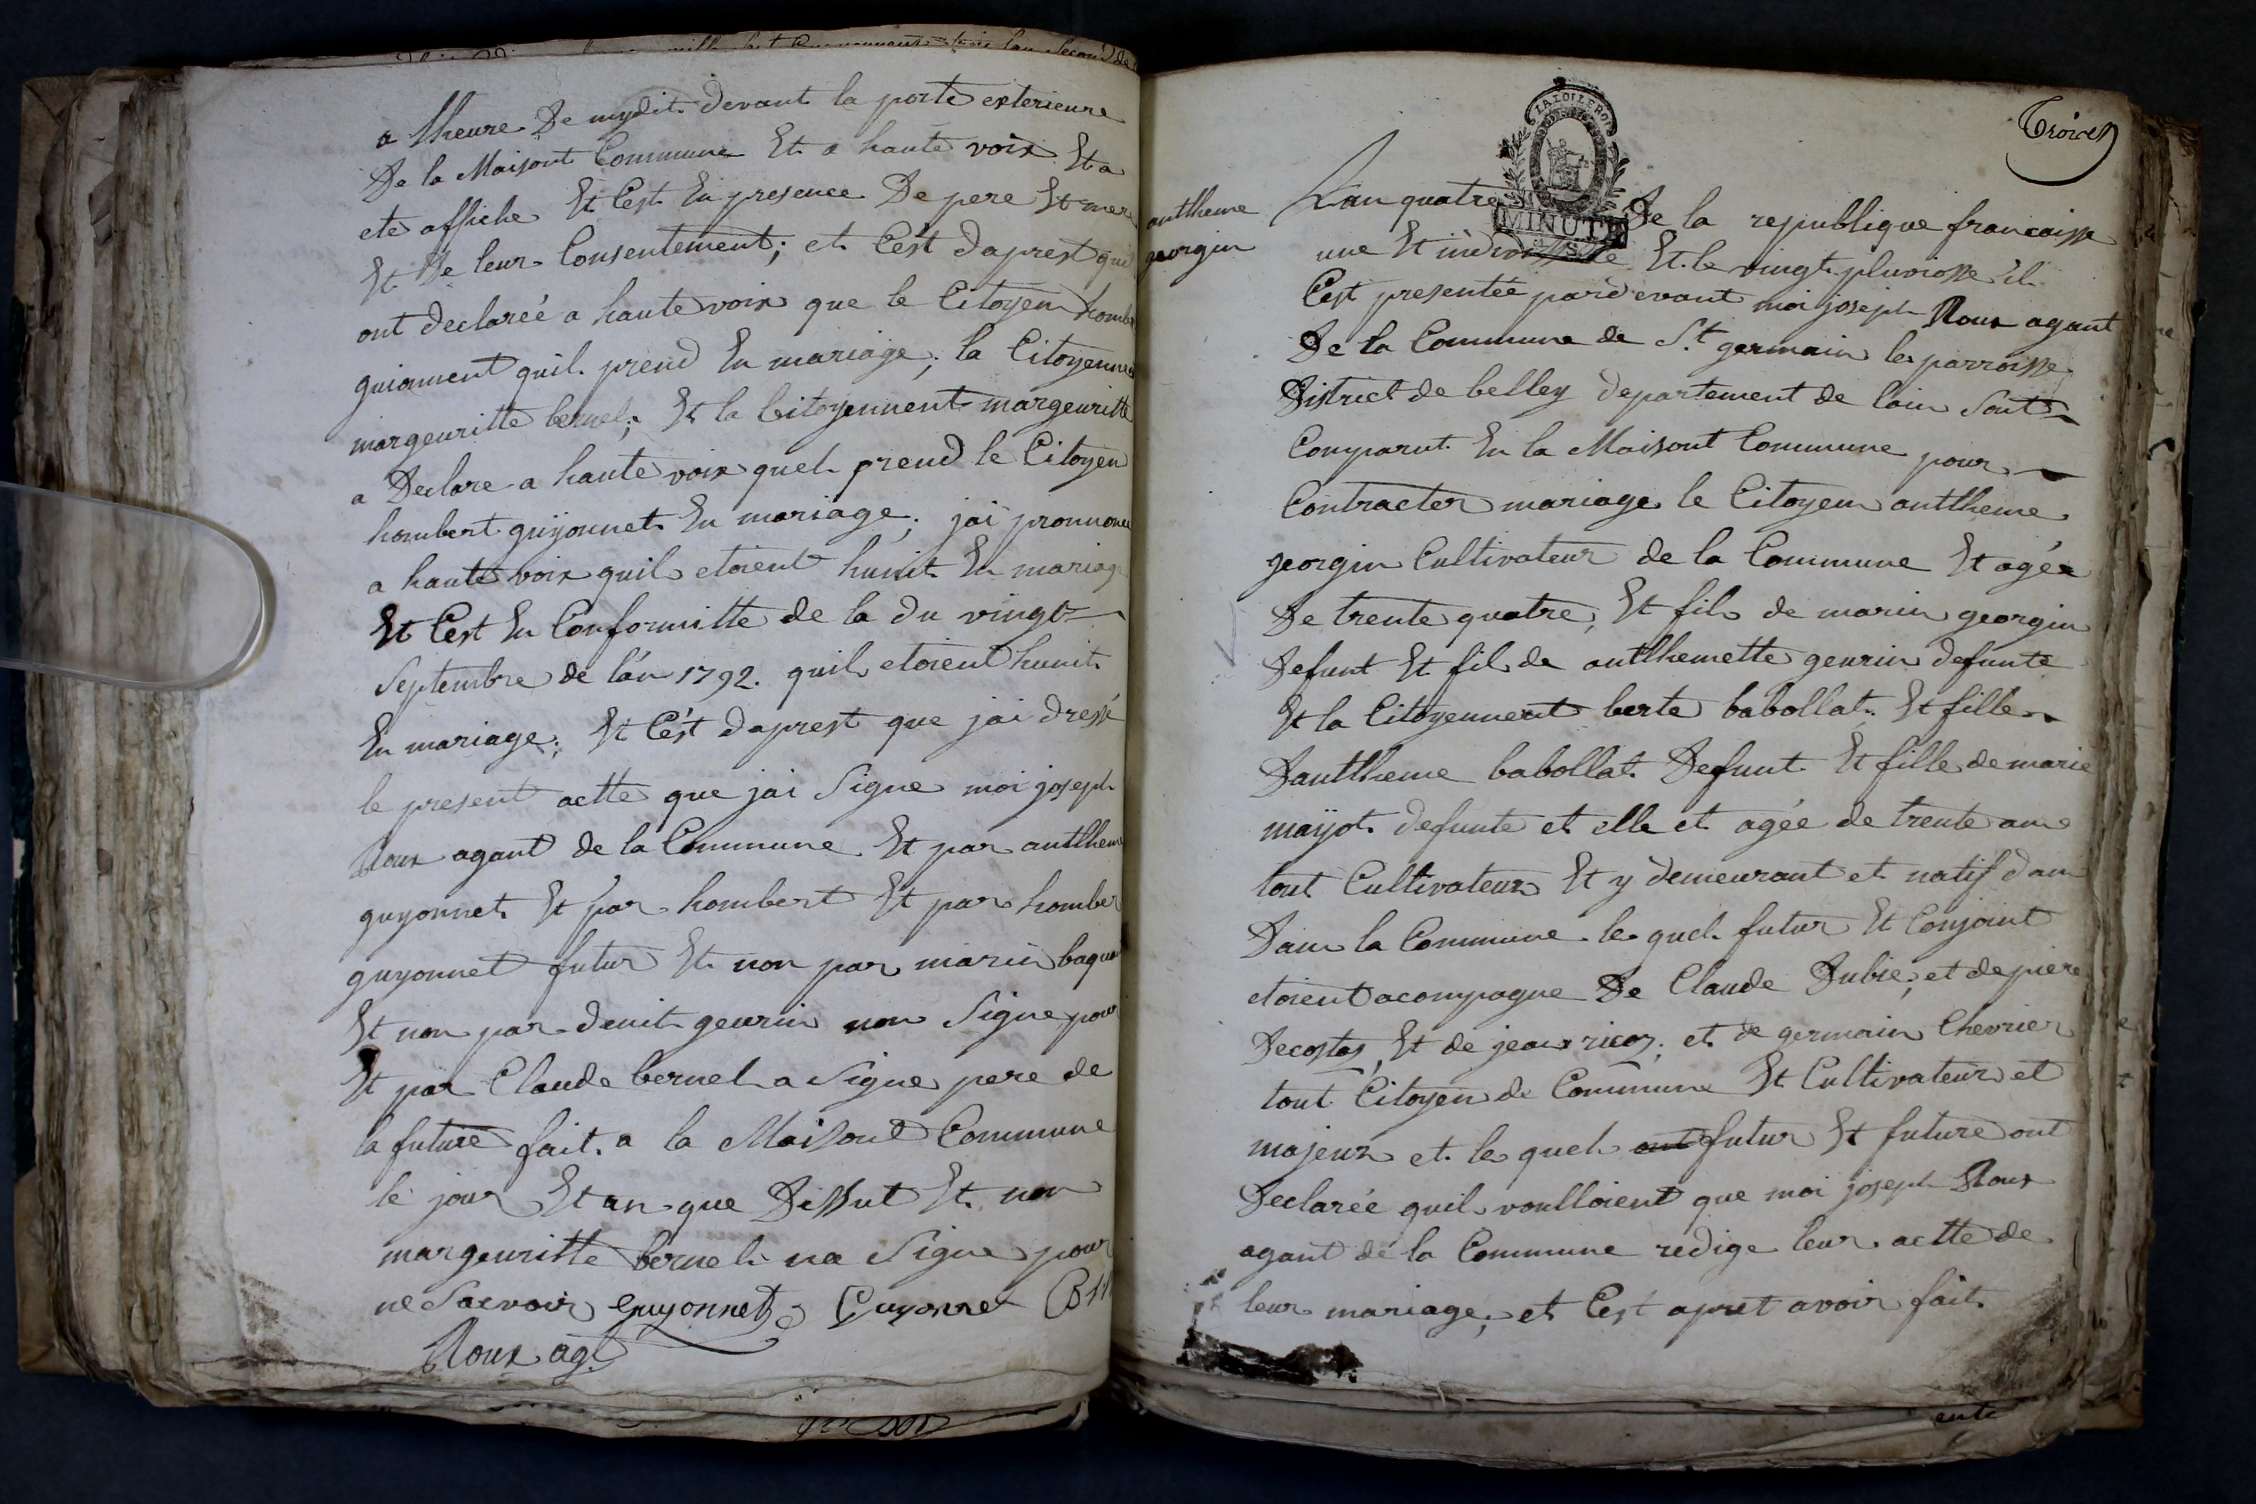 a lheure De mydit devant la porte exterieure
De la Maisont Commune Et a haute voix Et a
ete affiche Et Cest En presence De pere Et mere
Et De leur Consentement; et Cest daprest quil
ont declareé a haute voix que le Citoyen hombe
guionnent quil prend En mariage; la Citoyenne
margeuritte bernel; Et la Citoyennent margeuritte
a Declare a haute voix quel prend le Citoyen
hombert guÿonnet En mariage; jai pronnonce
a haute voix quil etoient hunit En mariage
Et Cest En Conformitte de la du vingt
Septembre de lan 1792. quil etoient hunit
En mariage; Et Cest daprest que jai dressé
le present actte que jai Signe moi joseph
Roux agant de la Commune Et par antlheme
guyonnet Et par hombert Et par homber
guyonnet futur Et non par marin
Et non par denit geurin non Signe pour
Et par Claude bernel a Signe pere de
la future fait a la Maisont Commune
le jour Et an que Dissut Et non
margeuritte bernel na Signe pour
ne Saivoir guyonnet Guyonnet
Roux agt
Troices
LA LOI LE ROI
MINUTE
antlheme
georgin
Lan quatre De la republique francaisse
une Et indivissible Et le vingt pluviosse il
Cest presentée pardevant moi joseph Roux agant
De la Commune de St germain les parroisse
District de belley departement de lain Sont
Comparut En la Maisont Commune pour
Contracter mariage le Citoyen antlheme
georgin Cultivateur de la Commune Et agée
De trente quatre, Et fils de marin georgin
Defunt Et fil de antlhemette geurin defunte
Et la Citoyennent berte babollat Et fille
Dantlheme babollat Defunt Et fille de marie
mayot defunte et elle et agée de trente ans
tout Cultivateur Et y demeurant et natif dan
Dans la Commune lequel futur Et Conjoint
etoient acompagne De Claude Dubie; et de piere
Decostas, Et de jean ricoz; et de germain Chevrier
tout Citoyen de Commune Et Cultivateur et
majeur et lequel ont futur Et future ont
Declareé quil voulloient que moi joseph Roux
agant de la Commune redige leur actte de
leur mariage; et Cest apret avoir fait